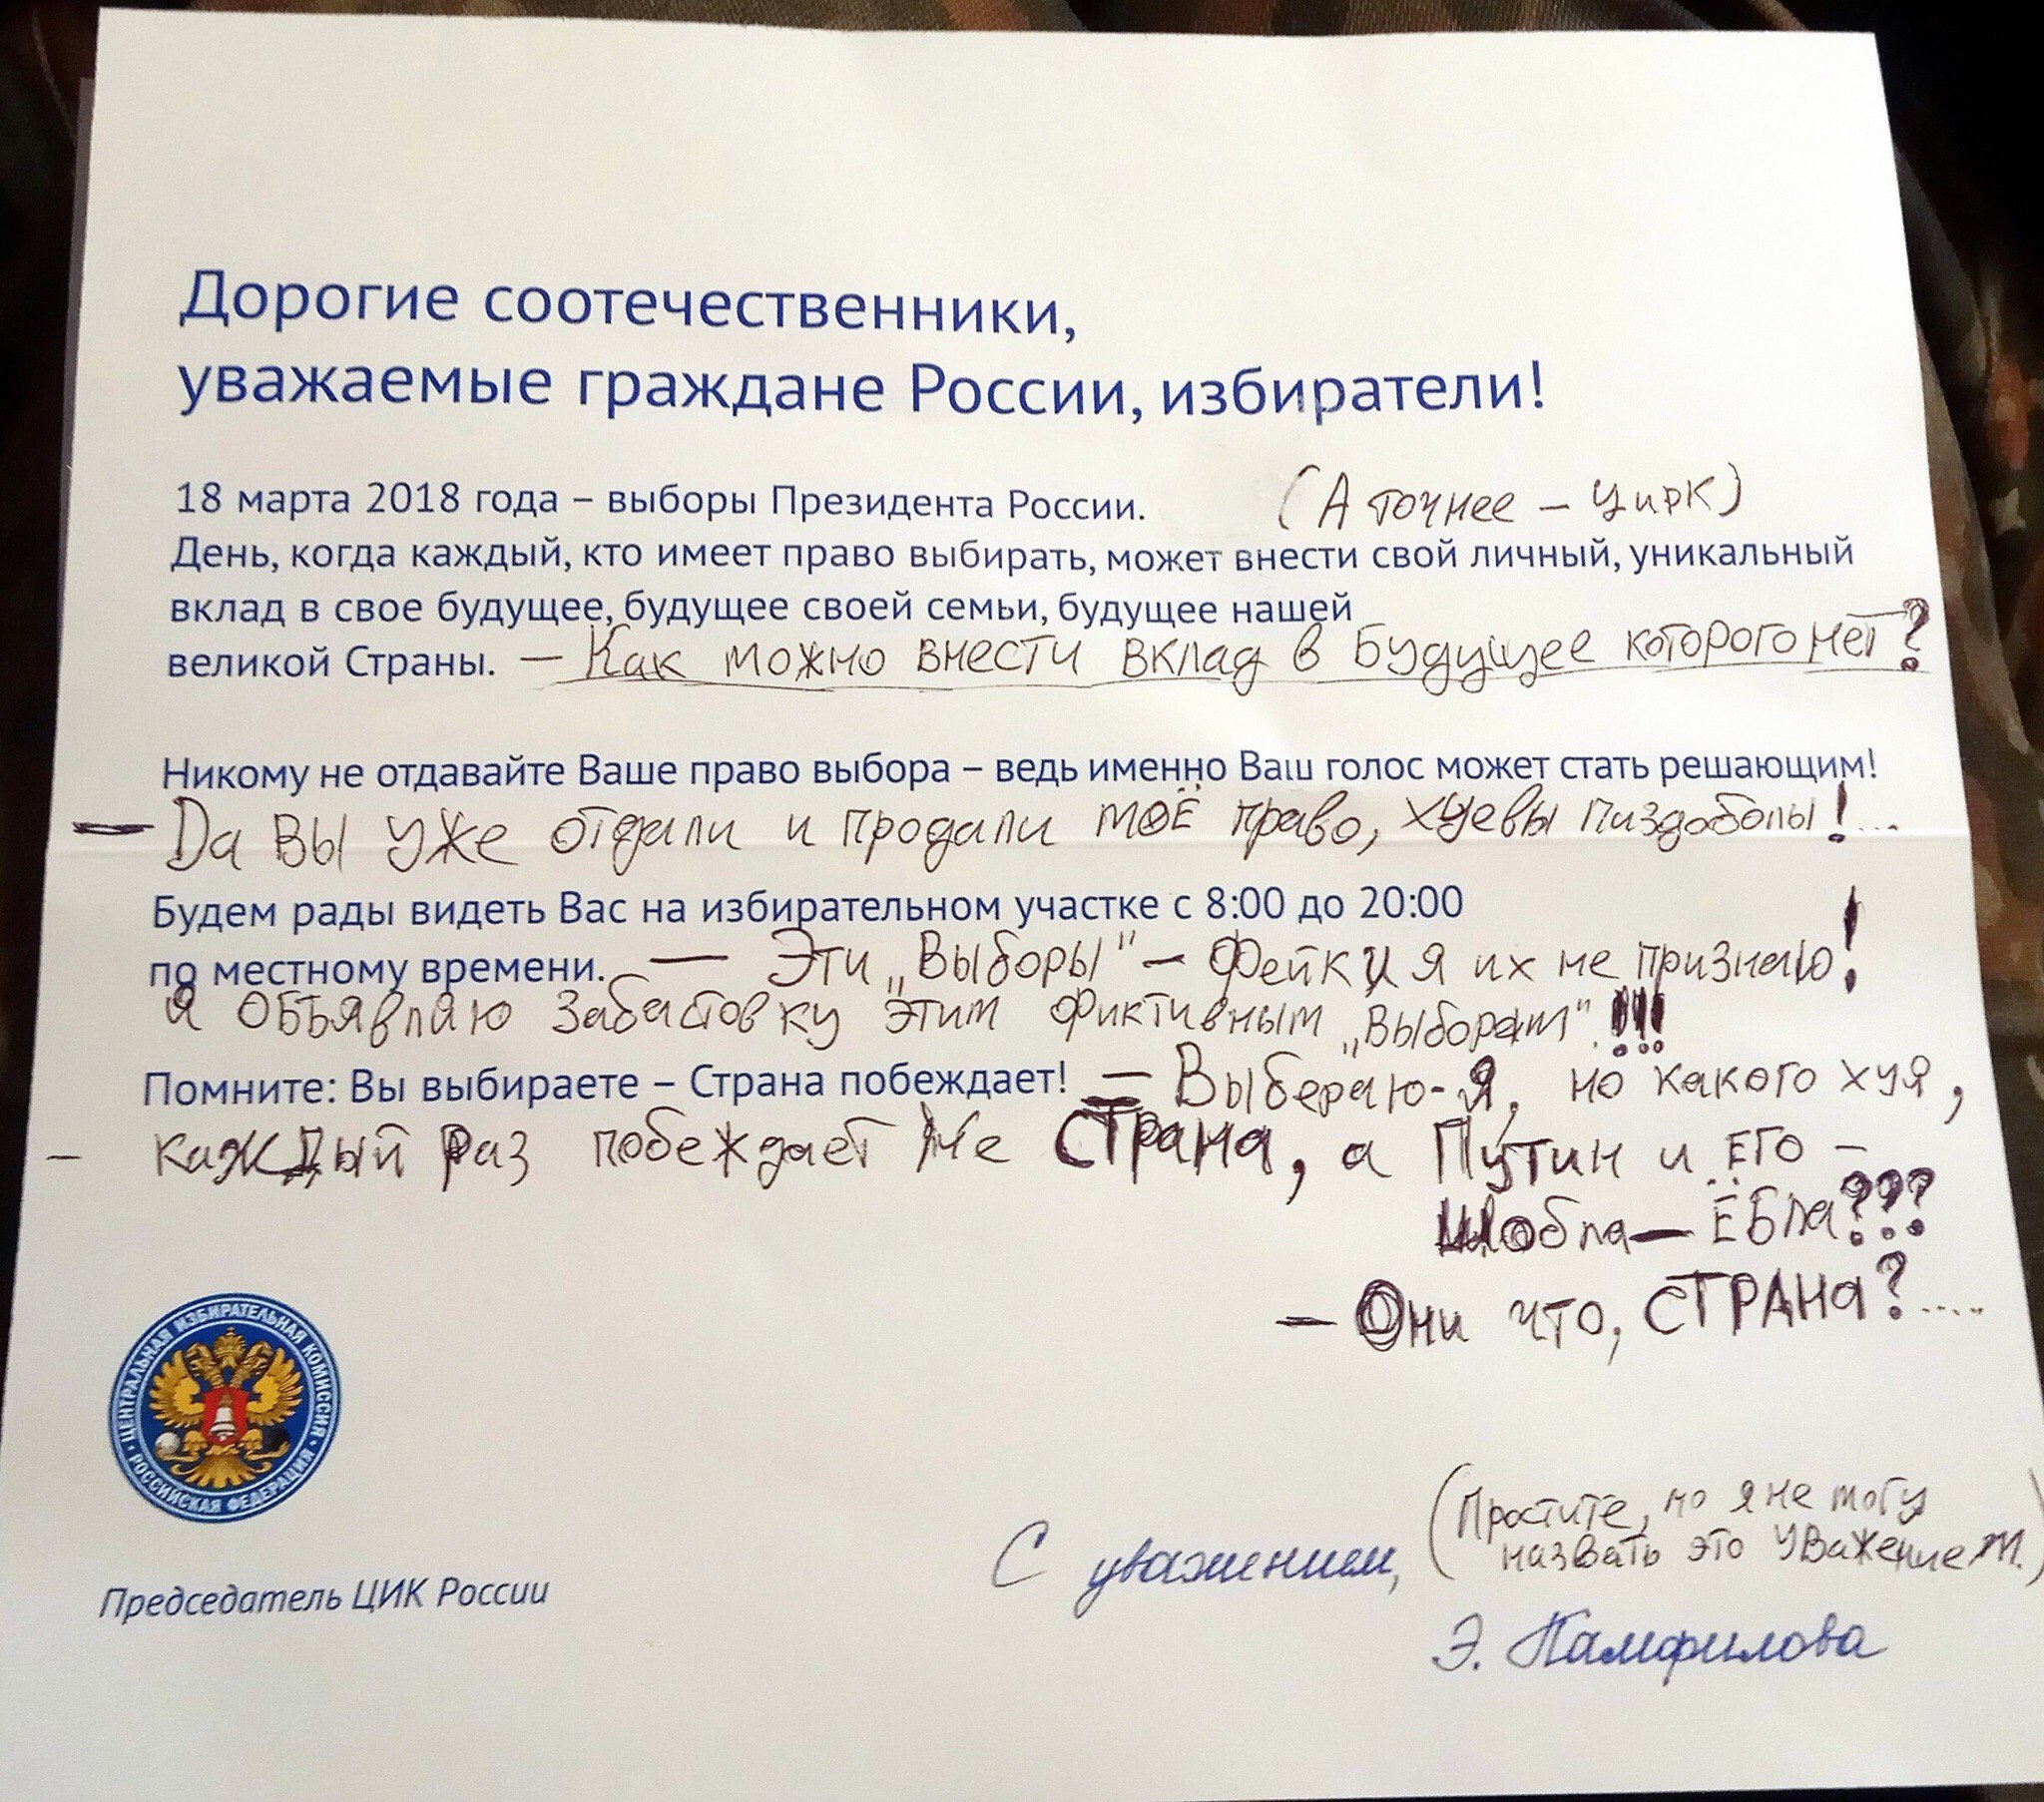 Дорогие соотечественники,
уважаемые граждане России, избиратели!
18 марта 2018 года – выборы Президента России. (А точнее – цирк)
День, когда каждый, кто имеет право выбирать, может внести свой личный, уникальный
вклад в свое будущее, будущее своей семьи, будущее нашей
великой Страны. — Как можно внести вклад в будущее которого нет?
Никому не отдавайте Ваше право выбора – ведь именно Ваш голос может стать решающим!
— Да вы уже отдали и продали моё право, хуевы пиздоболы!...
Будем рады видеть Вас на избирательном участке с 8:00 до 20:00
по местному времени. — Эти „Выборы" – Фейк и я их не признаю!
Я объявляю забастовку этим фиктивным „Выборам".!!!
Помните: Вы выбираете – Страна побеждает! — Выбераю-Я, но какого хуя,
– каждый раз побеждает не Страна, а Путин и его –
шобла — ЁБла???
— Они что, СТРАНА?.....
ЦЕНТРАЛЬНАЯ ИЗБИРАТЕЛЬНАЯ КОМИССИЯ • РОССИЙСКАЯ ФЕДЕРАЦИЯ •
С уважением, (Простите, но я не могу
назвать это уважением.)
Председатель ЦИК России
Э. Памфилова